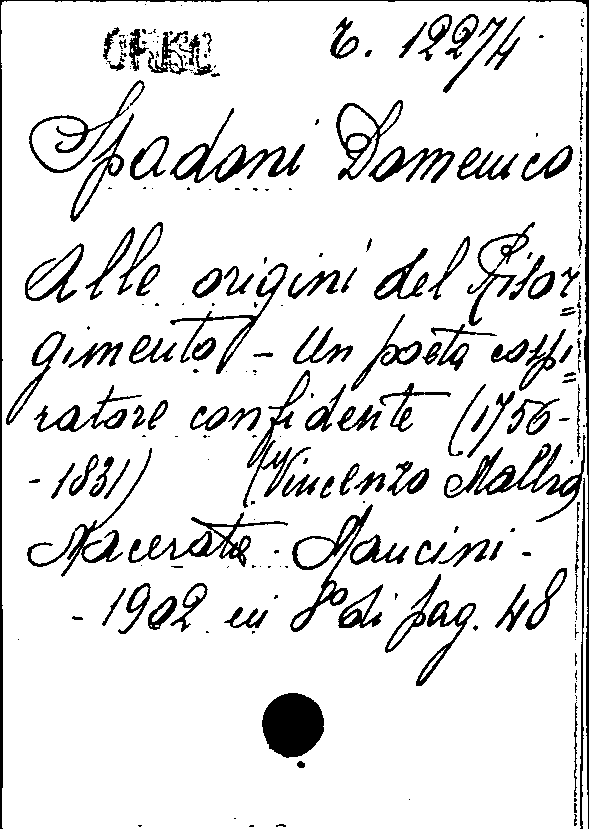 OPUSC. r. 12274
Spadoni Domenico
Alle origini del Risor=
gimento - Un poeta cospi=
ratore confidente (1756-
-1831) (Vincenzo
Macerata. Mancini -
- 1902 in 8° di pag. 48